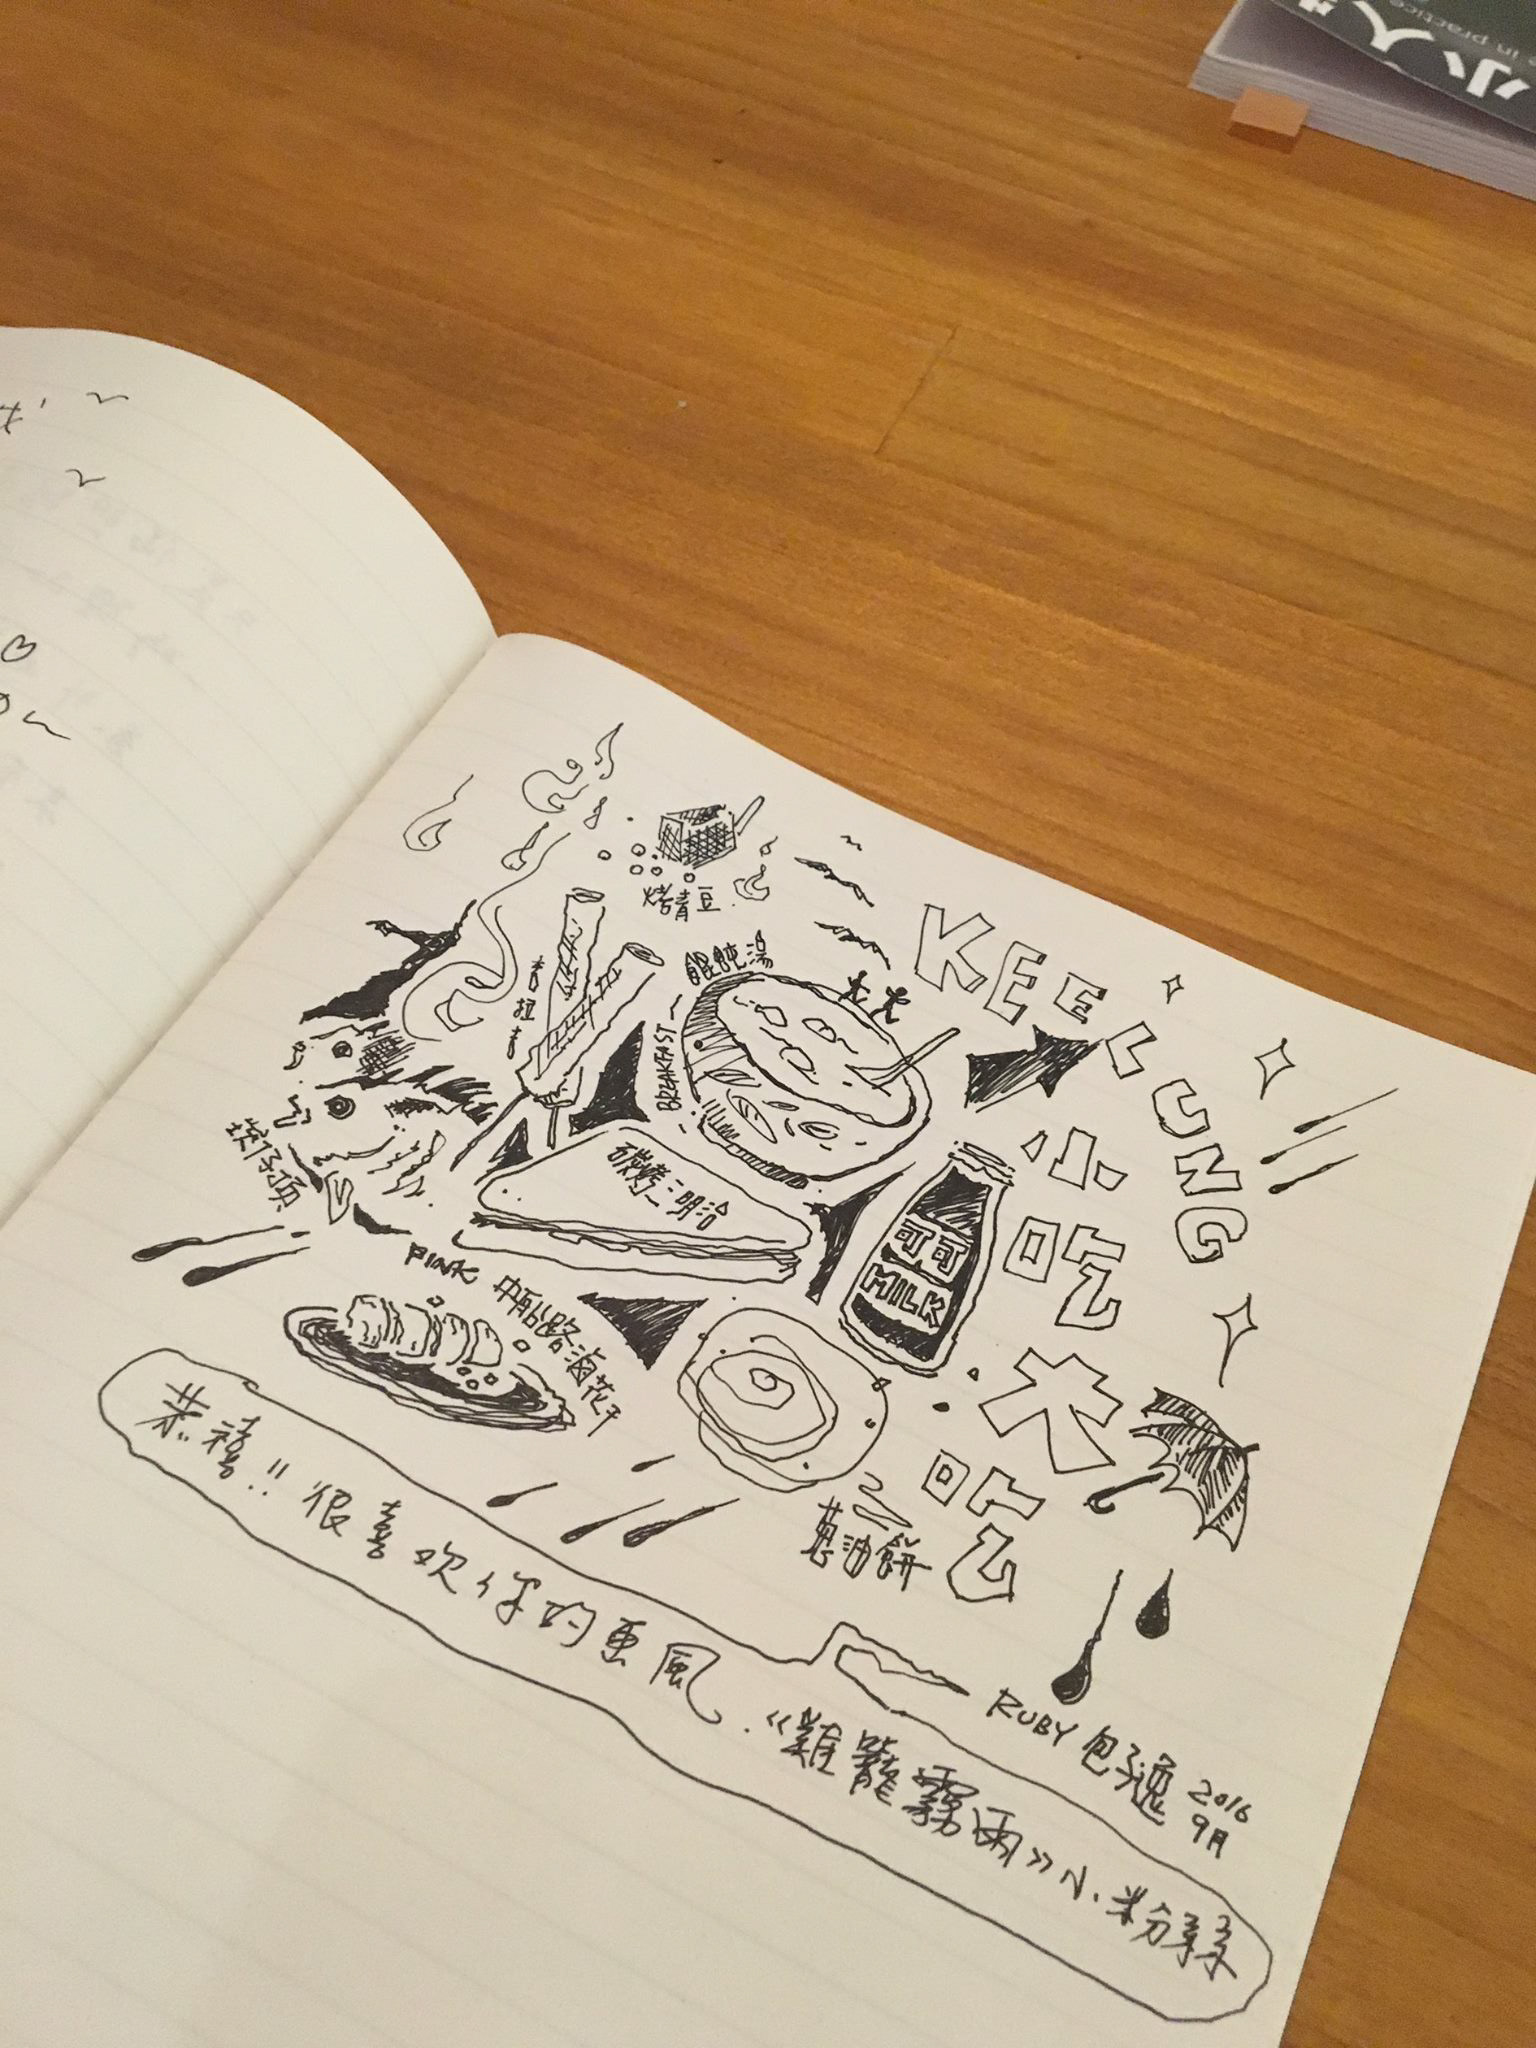 小人
in practice
KEELUNG
小吃大吃
烤青豆
吉拉吉
餛飩湯
BREAKFAST
炭烤三明治
可可
MILK
蔥油餅
滷花干
恭禧!! 很喜欢你的画風.
《雞籠霧雨》小粉絲
RUBY 包子逸 2016
9月